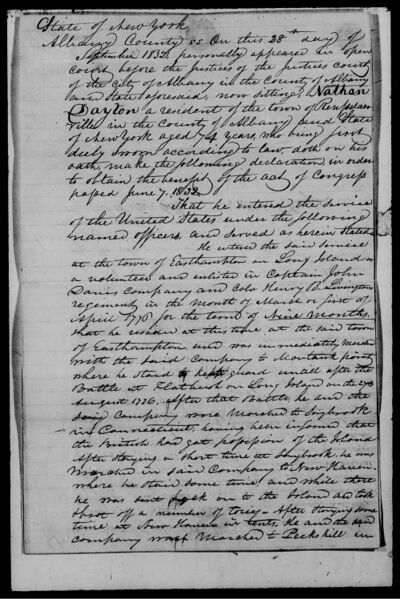 State of New York
Albany County ss On this 28th day of
September 1832, personally appeared in open
court before the Justices of the Justices court
of the City of Albany in the County of Albany
and State aforesaid, now sitting, Nathan
Dayton a resident of the town of Rensselaer
ville in the County of Albany and State
of New York aged 74 years who being first
duly sworn according to law, doth on his
oath, make the following declaration in order
to obtain the benefit of the act of Congress
passed June 7, 1832.
That he entered the service
of the United States under the following
named officers, and served as herein stated.
He entered the said service
at the town of Easthampton on Long Island as
a volunteer and enlisted in Captain John
Davis Company and Colo Henry B. Livingston
regement in the Month of March or first of
April 1776 for the term of Nine Months.
that he resided at this time at the said town
of Easthampton, and was immediately march
with the said Company to Montauk point
where he stood kept guard untill after the
Battle at Flatbush on Long Island on the 27
August 1776. After that Battle, he and the
said Company were Marched to Saybrook
in Connecticut, having been informed that
the British had got possession of the Island
After staying a short time at Saybrook, he was
Marched in said Company to New Haven.
where he staid some time, and while there
he was sent back on to the Island and took
off a number of torys. After staying some
time at New Haven in tents, he and the said
company was Marched to Peekskill in